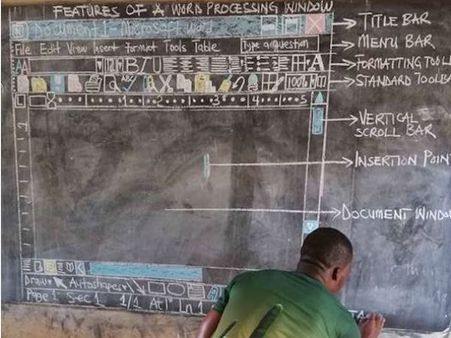 FEATURES OF A WORD PROCESSING WINDOW
Document1 - Microsoft Word
TITLE BAR
File Edit View Insert Format Tools Table Type a question
MENU BAR
12 B I U A
FORMATTING TOOL
ABC 100%
STANDARD TOOLBA
1 2 3 4 5
VERTICAL
SCROLL BAR
INSERTION POIN
DOCUMENT WINDOW
Draw Autoshapes
Page 1 Sec 1 1/1 At 1" Ln 1